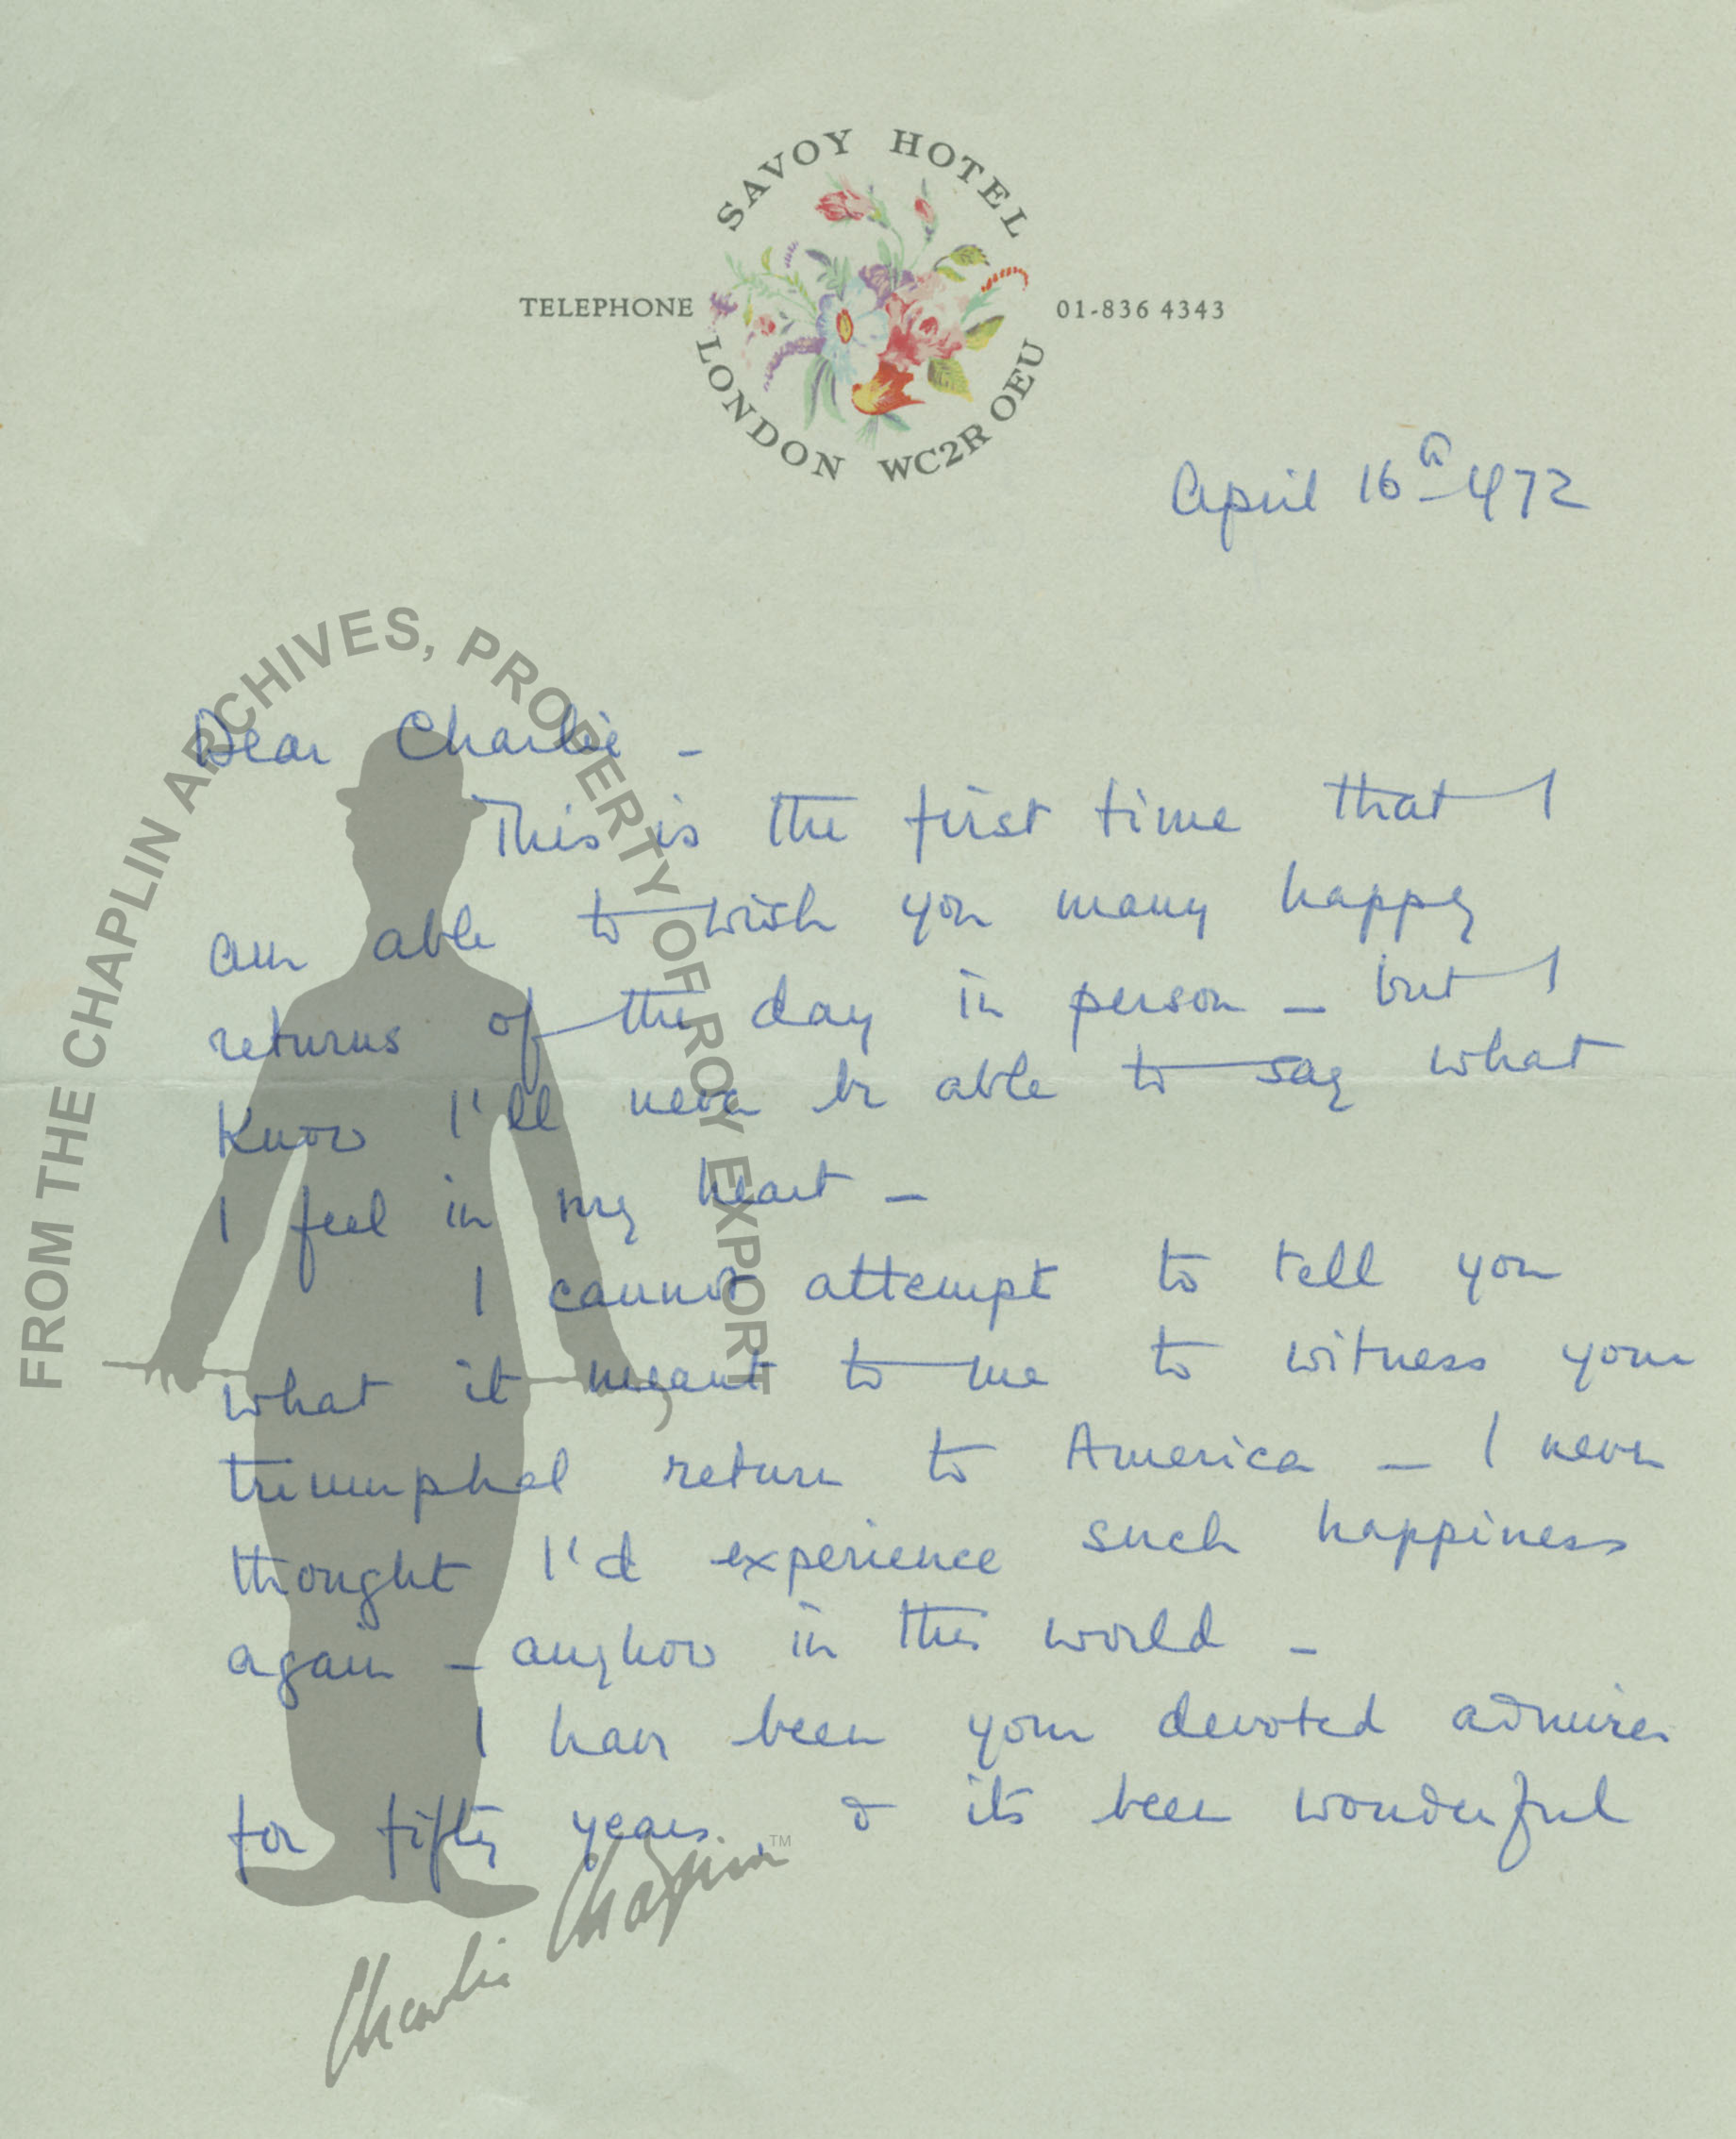 SAVOY HOTEL
TELEPHONE 01-836 4343
LONDON WC2R OEU
April 16th 1972
Dear Charlie -
This is the first time that I
am able to wish you many happy
returns of the day in person - but I
know I'll never be able to say what
I feel in my heart -
I cannot attempt to tell you
what it meant to me to witness your
triumphal return to America - I never
thought I'd experience such happiness
again - anyhow in this world -
I have been your devoted admirer
for fifty years, & its been wonderful
FROM THE CHAPLIN ARCHIVES, PROPERTY OF ROY EXPORT
Charlie Chaplin TM